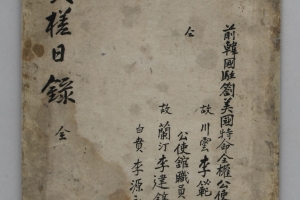 槎日錄 全
前韓國駐箚美國特命全權公使
故川雲李範
公使館職員
故蘭汀李建鎬
白賁李源